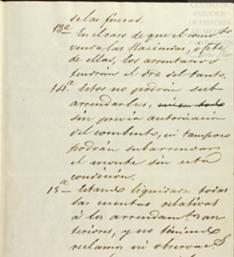 se las fincas.
13ª En el caso de que el comvto
venda las Haciendas, o pte
de ellas, los arrentarios
tendrán el dro del tanto.
14ª Estos no podrán sub
arrendarlas,
sin prévia autorizacion
del combento, ni tampoco
podrán subarrendar
el monte sin esta
condicion.
15ª Estando liquidada todas
las cuentas relativas
á los arrendamtos an-
teriores, y no teniendo
reclamo ni observac
CENTRO DE
ESTUDIOS
DE HISTORIA
DE MEXICO